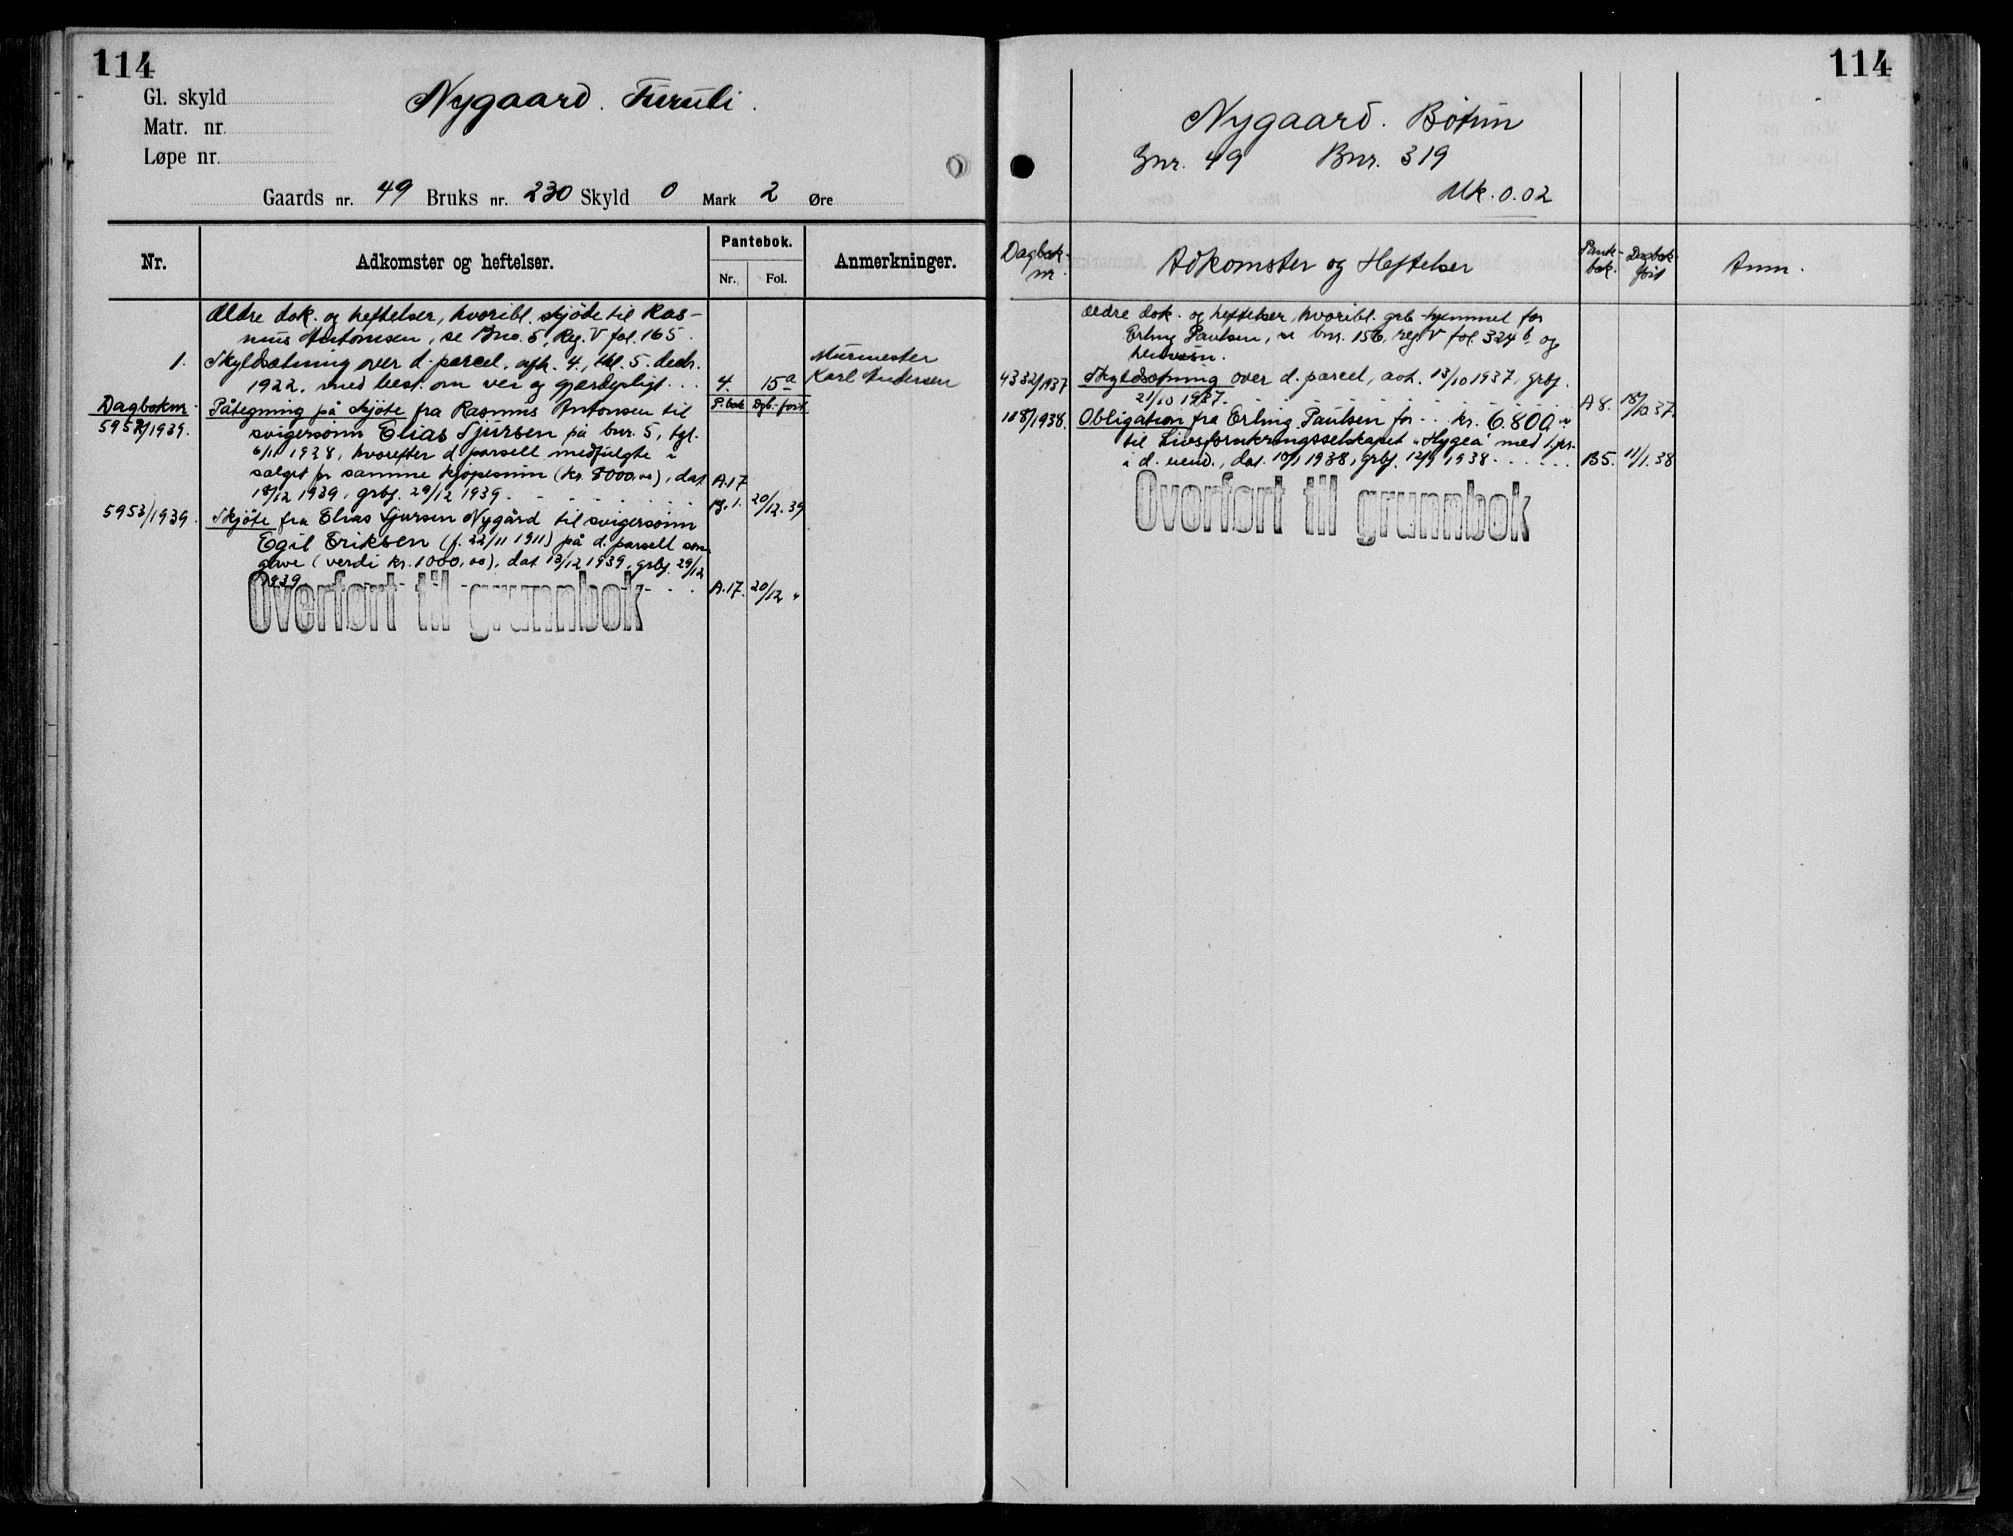 114
Gl. skyld
Matr. nr.
Løpe nr.
Nygaard. Furuli.
Gaards nr. 49 Bruks nr. 230 Skyld 0 Mark 2 Øre
Nr.
Adkomster og heftelser.
Pantebok.
Nr. Fol.
Anmerkninger.
Ældre dok. og heftelser, hvoribl. skjøde til Ras-
mus Antonsen, se Bno. 5, Reg. V fol. 165.
1. Skyldsætning over d. parcel, afh. 4., tbl. 5. decbr.
1922, med best. om vei og gjærdepligt . . 4. 15a
Murmester
Karl Andersen
Dagboknr. P.bok Dgb. ført
5952/1939. Påtegning på skjøte fra Rasmus Antonsen til
svigersønn Elias Sjursen på bnr. 5, tgl.
6/11 1928, hvorefter d. parsell medfulgte i
salget for samme kjøpesum (kr. 8000,00), dat.
18/12 1939, grbf. 29/12 1939. A.17
B.1. 20/12.39
5953/1939. Skjøte fra Elias Sjursen Nygård til svigersønn
Egil Eriksen (f. 22/11 1911) på d. parsell som
gave (verdi kr. 1000,00), dat 13/12 1939, grbf. 29/12
1939 A.17. 20/12 "
Overført til grunnbok
114
Nygaard. Bøtun
Gnr. 49 Bnr. 319
Mk. 0.02
Dagbok-
nr.
Adkomster og Heftelser
Pante-
bok.
Dagbok-
ført
Anm.
Ældre dok. og heftelser, hvoribl. grb hjemmel for
Erling Paulsen, se bnr. 156, reg V fol. 324 b og
henvisn.
4332/1937 Skyldsetning over d. parcel, avh. 13/10 1937, grbf.
21/10 1937. A8. 18/10 37.
118/1938. Obligation fra Erling Paulsen for . . kr. 6.800,-
til Livsforsikringsselskapet "Hygea" med 1. pr.
i d. eiend., dat. 10/1 1938, grbf. 12/1 1938 B5. 11/1.38
Overført til grunnbok